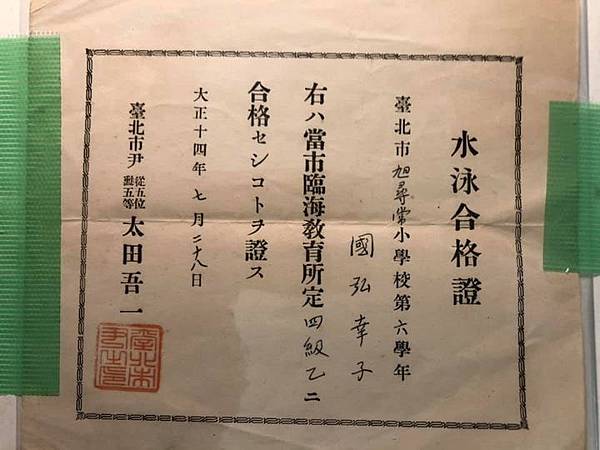 水泳合格證
臺北市旭尋常小學校第六學年
國弘幸子
右ハ當市臨海敎育所定四級乙ニ
合格セシコトヲ證ス
大正十四年七月二十八日
臺北市尹 從五位勳五等 太田吾一
臺北市尹之印